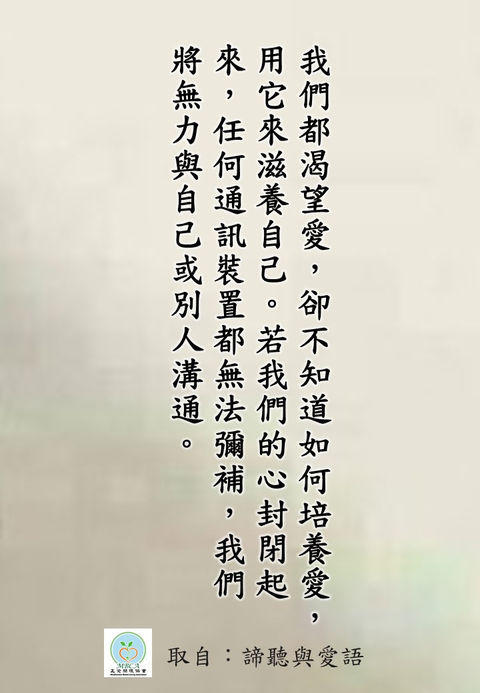 我們都渴望愛，卻不知道如何培養愛，
用它來滋養自己。若我們的心封閉起
來，任何通訊裝置都無法彌補，我們
將無力與自己或別人溝通。
MBCA
取自：諦聽與愛語